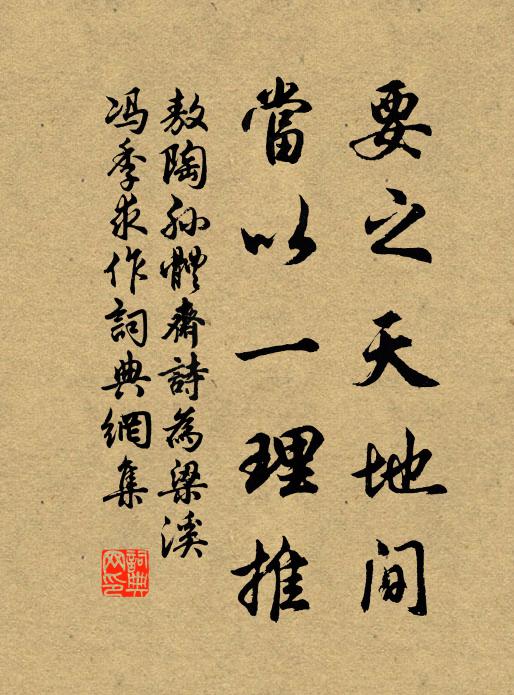 要之天地间
當以一理推
敖陶孙體齋詩為梁溪
冯季求作詞典網集
詞典網印